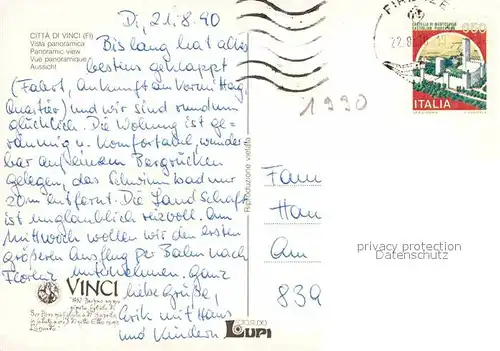 Di, 21.8.90
CITTÀ DI VINCI (FI)
Vista panoramica
Panoramic view
Vue panoramique
Aussicht
Bislang hat alles
bestens geklappt
(Fahrt, Ankunft am Vormittag,
Quartier) und wir sind rundum
glücklich. Die Wohnung ist ge-
räumig u. komfortabel, wunder
bar auf einem Bergrücken
gelegen, das Schwimmbad nur
20m entfernt. Die Landschaft
ist unglaublich reizvoll. Am
Mittwoch wollen wir den ersten
größeren Ausflug per Bahn nach
Florenz unternehmen. Ganz
liebe Grüße,
mit Hans
und Kindern
VINCI
Riproduzione vietata
EDIZIONI
LUPI
FIRENZE
22.8
650
ITALIA
1990
Fam
Han
Am
839
privacy protection
Datenschutz